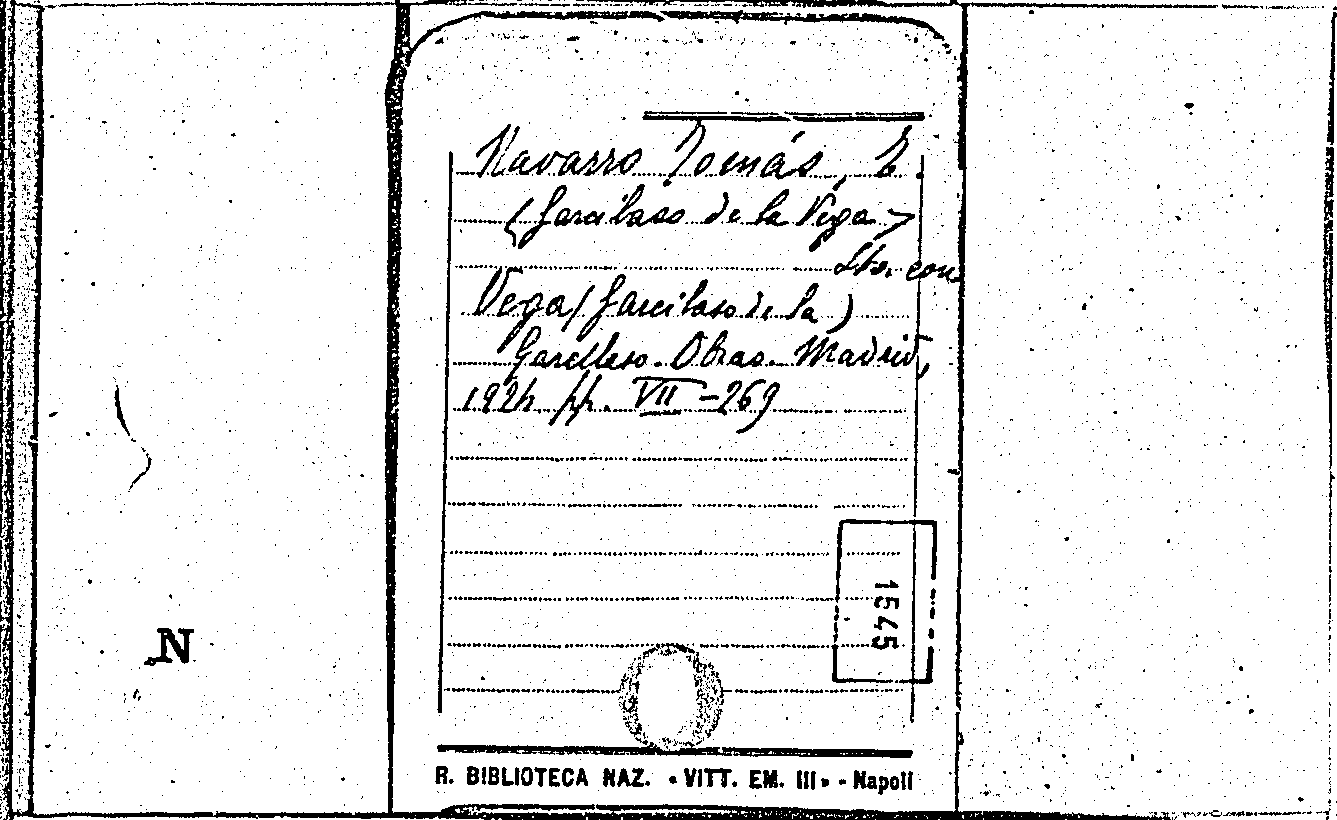 Navarro Tomás, T.
(Garcilaso de la Vega)
Sta. con
Vega (Garcilaso de la)
Garcileso. Obras. Madrid,
1924 pp. VII-269
1545
N
R. BIBLIOTECA NAZ. «VITT. EM. III» - Napoli